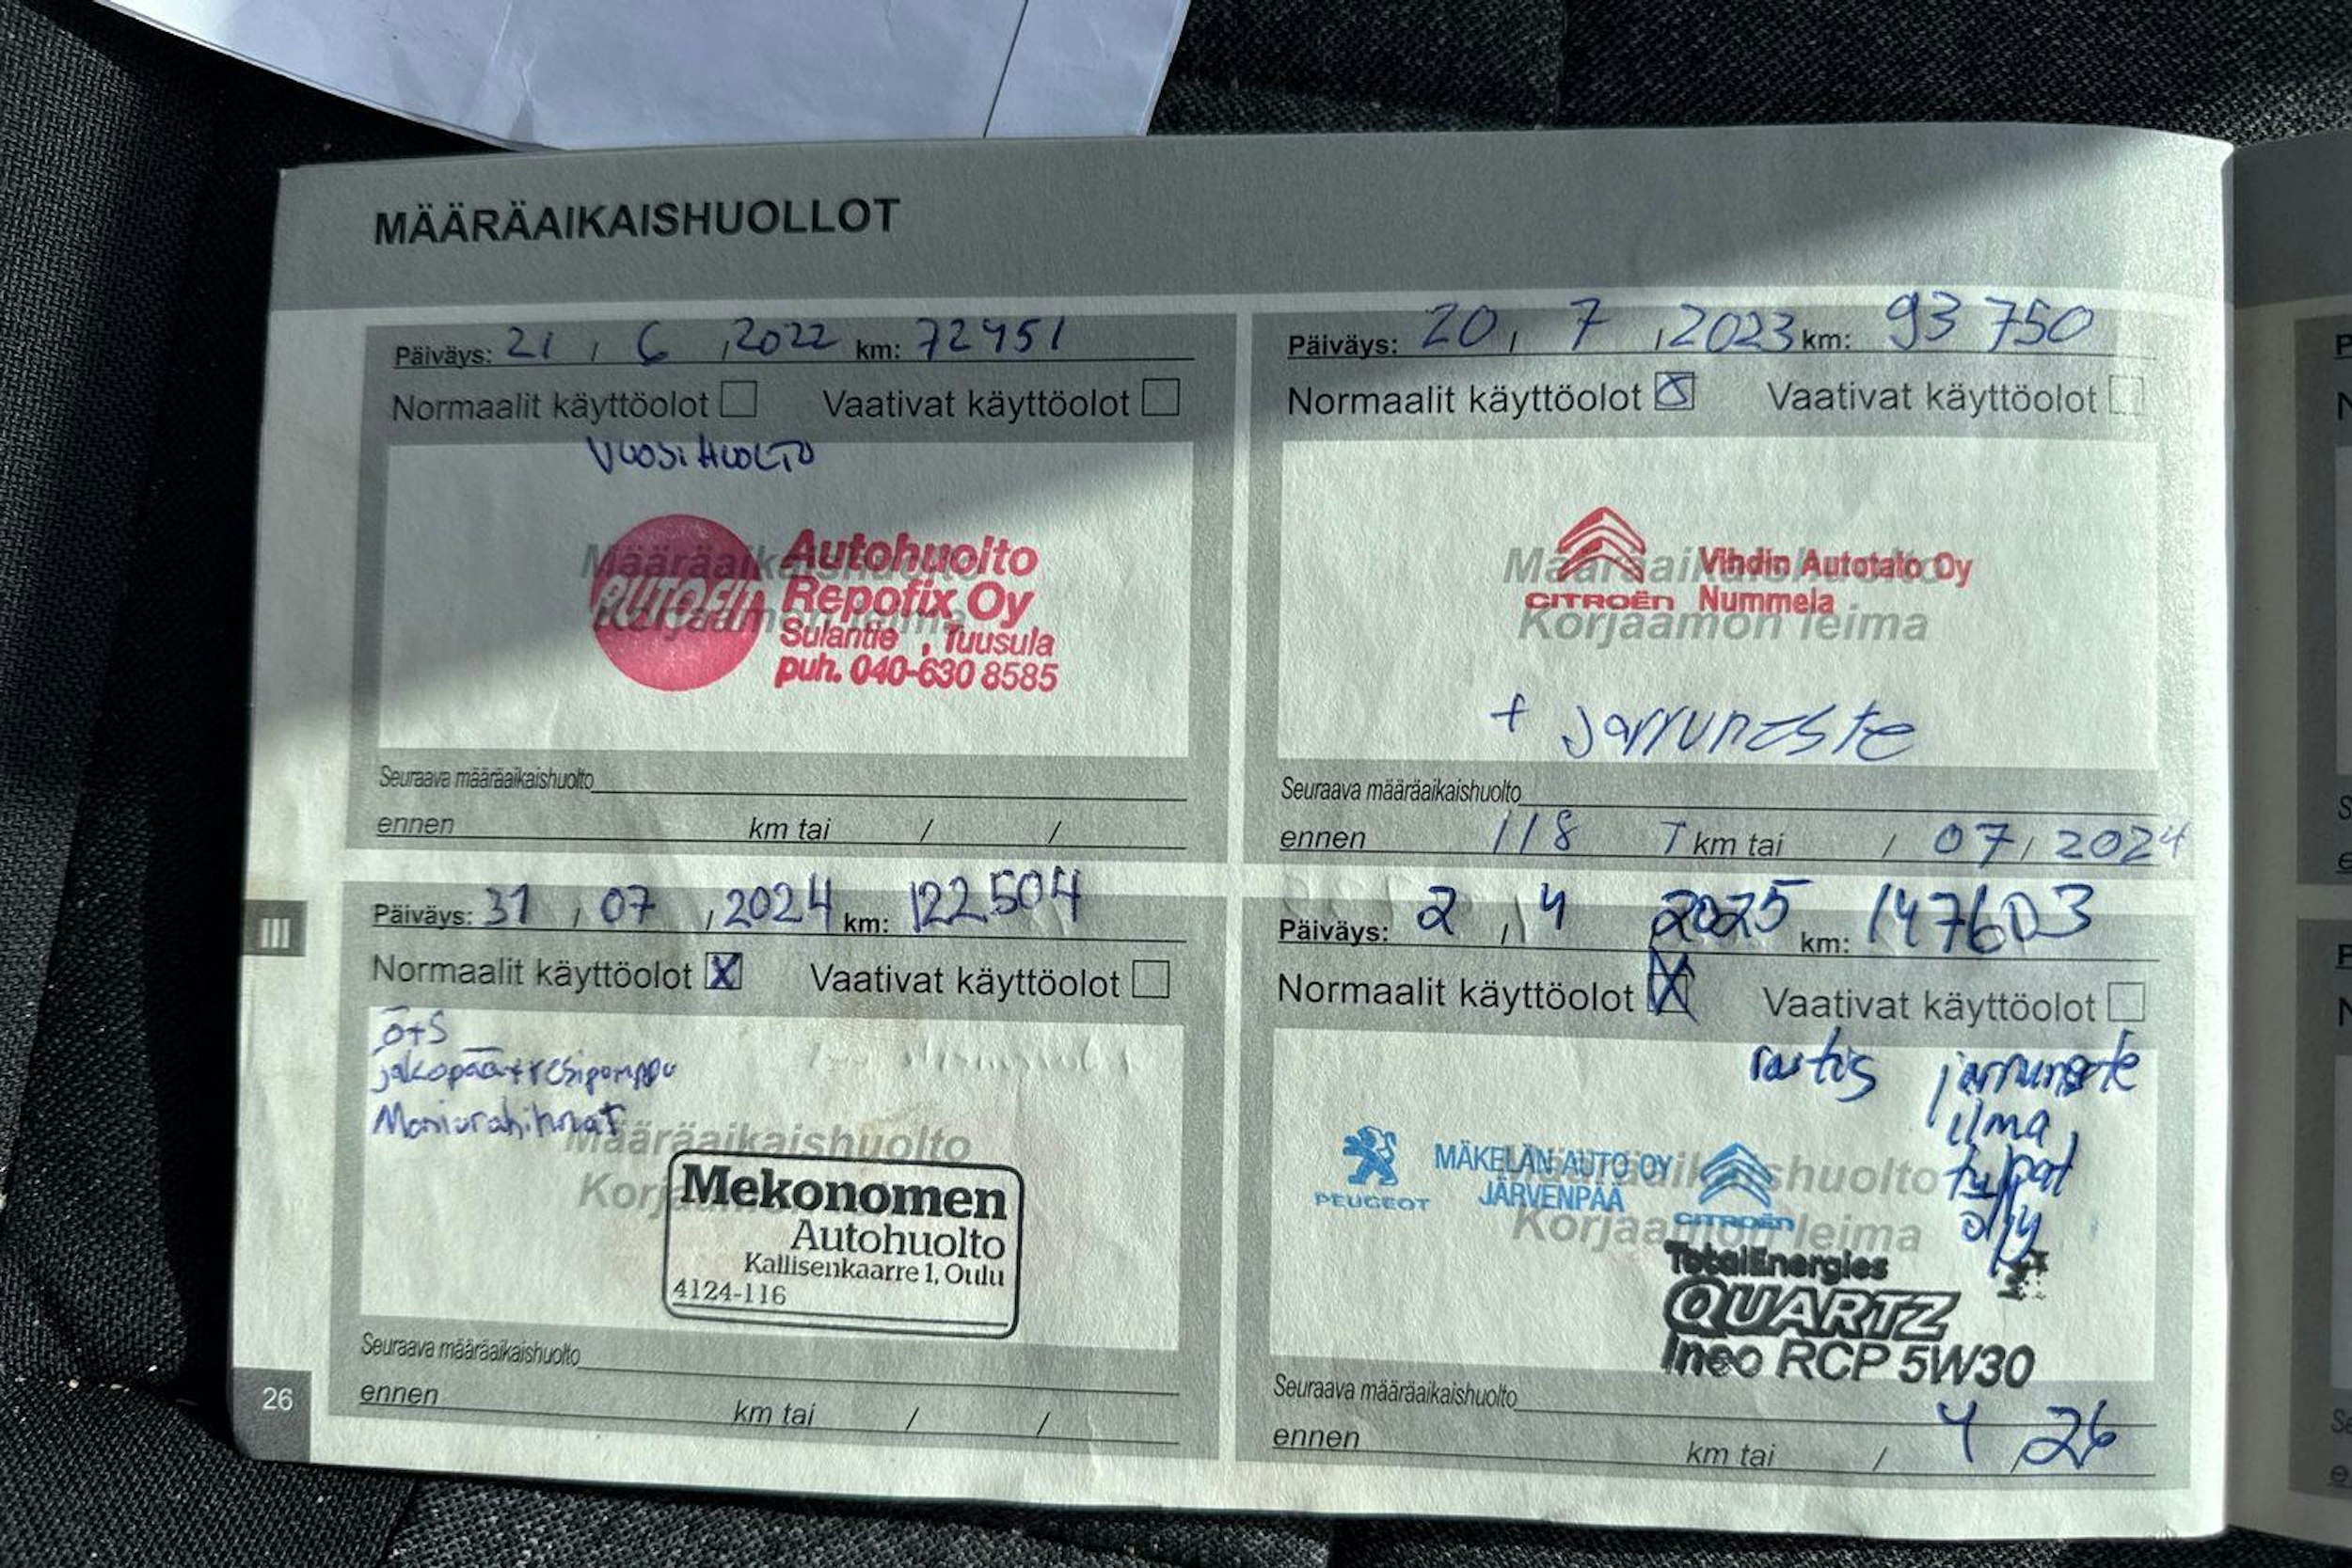 MÄÄRÄAIKAISHUOLLOT
Päiväys: 21 / 6 / 2022 km: 72451
Normaalit käyttöolot Vaativat käyttöolot
VUOSIHUOLTO
Määräaikaishuolto
Korjaamon leima
AUTOFIT
Autohuolto
Repofix Oy
Sulantie , Tuusula
puh. 040-630 8585
Seuraava määräaikaishuolto
ennen km tai / /
Päiväys: 20 / 7 / 2023 km: 93 750
Normaalit käyttöolot X Vaativat käyttöolot
Määräaikaishuolto
Korjaamon leima
CITROËN
Vihdin Autotalo Oy
Nummela
+ jarruneste
Seuraava määräaikaishuolto
ennen 118 T km tai / 07 / 2024
Päiväys: 31 / 07 / 2024 km: 122504
Normaalit käyttöolot X Vaativat käyttöolot
Ö+S
jakopää+vesipumppu
Moniurahihnat
Määräaikaishuolto
Mekonomen
Autohuolto
Kallisenkaarre 1, Oulu
4124-116
Seuraava määräaikaishuolto
ennen km tai / /
Päiväys: 2 / 4 2025 km: 147603
Normaalit käyttöolot X Vaativat käyttöolot
jarruneste
ilma
tulpat
öljy
PEUGEOT
MÄKELÄN AUTO OY
JÄRVENPÄÄ
CITROËN
Määräaikaishuolto
Korjaamon leima
TotalEnergies
QUARTZ
Ineo RCP 5W30
Seuraava määräaikaishuolto
ennen km tai / 4 / 26
III
26